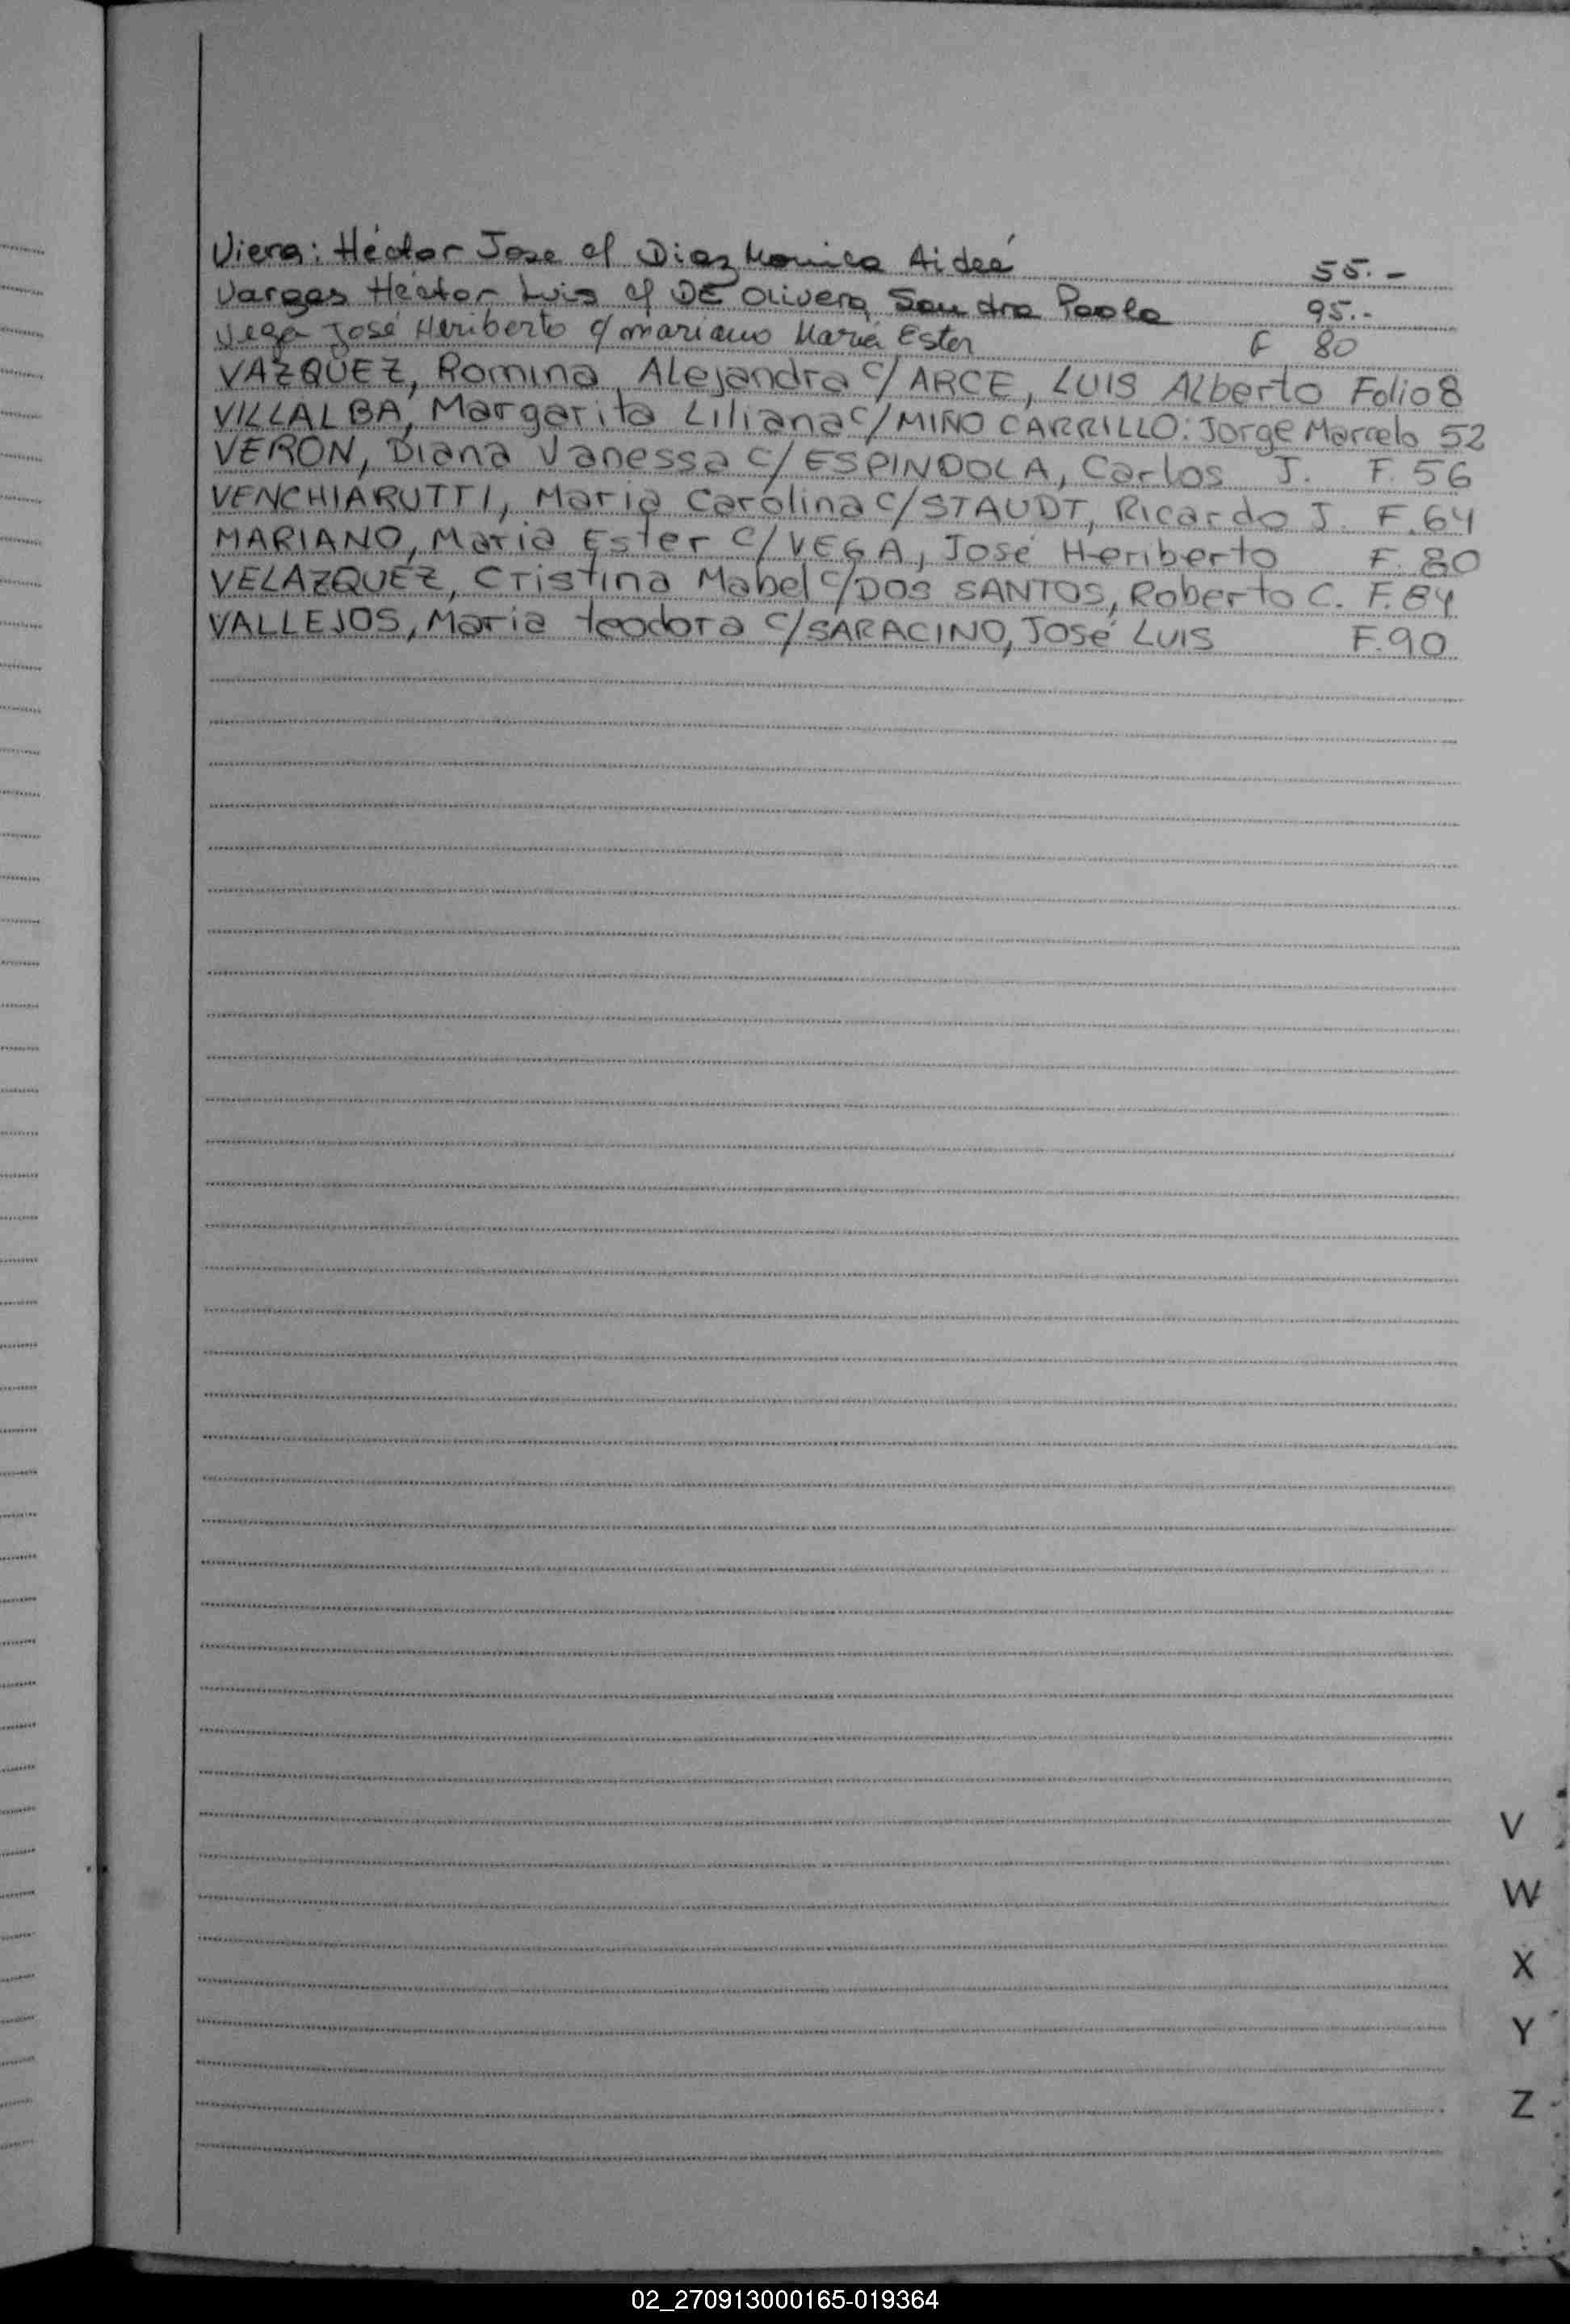 Viera: Héctor Jose c/ Diaz Monica Aideé 55.-
Vargas Héctor Luis c/ DE Olivera, Sandra Paola 95.-
Vega José Heriberto c/ mariano María Ester F 80
VAZQUEZ, Romina Alejandra c/ ARCE, LUIS Alberto Folio 8
VILLALBA, Margarita Liliana c/ MIÑO CARRILLO: Jorge Marcelo 52
VERON, Diana Vanessa c/ ESPINDOLA, Carlos J. F. 56
VENCHIARUTTI, Maria Carolina c/ STAUDT, Ricardo J. F. 64
MARIANO, Maria Ester c/ VEGA, José Heriberto F. 80
VELAZQUEZ, Cristina Mabel c/ DOS SANTOS, Roberto C. F. 84
VALLEJOS, Maria teodora c/ SARACINO, José LUIS F. 90
V
W
X
Y
Z
02_270913000165-019364